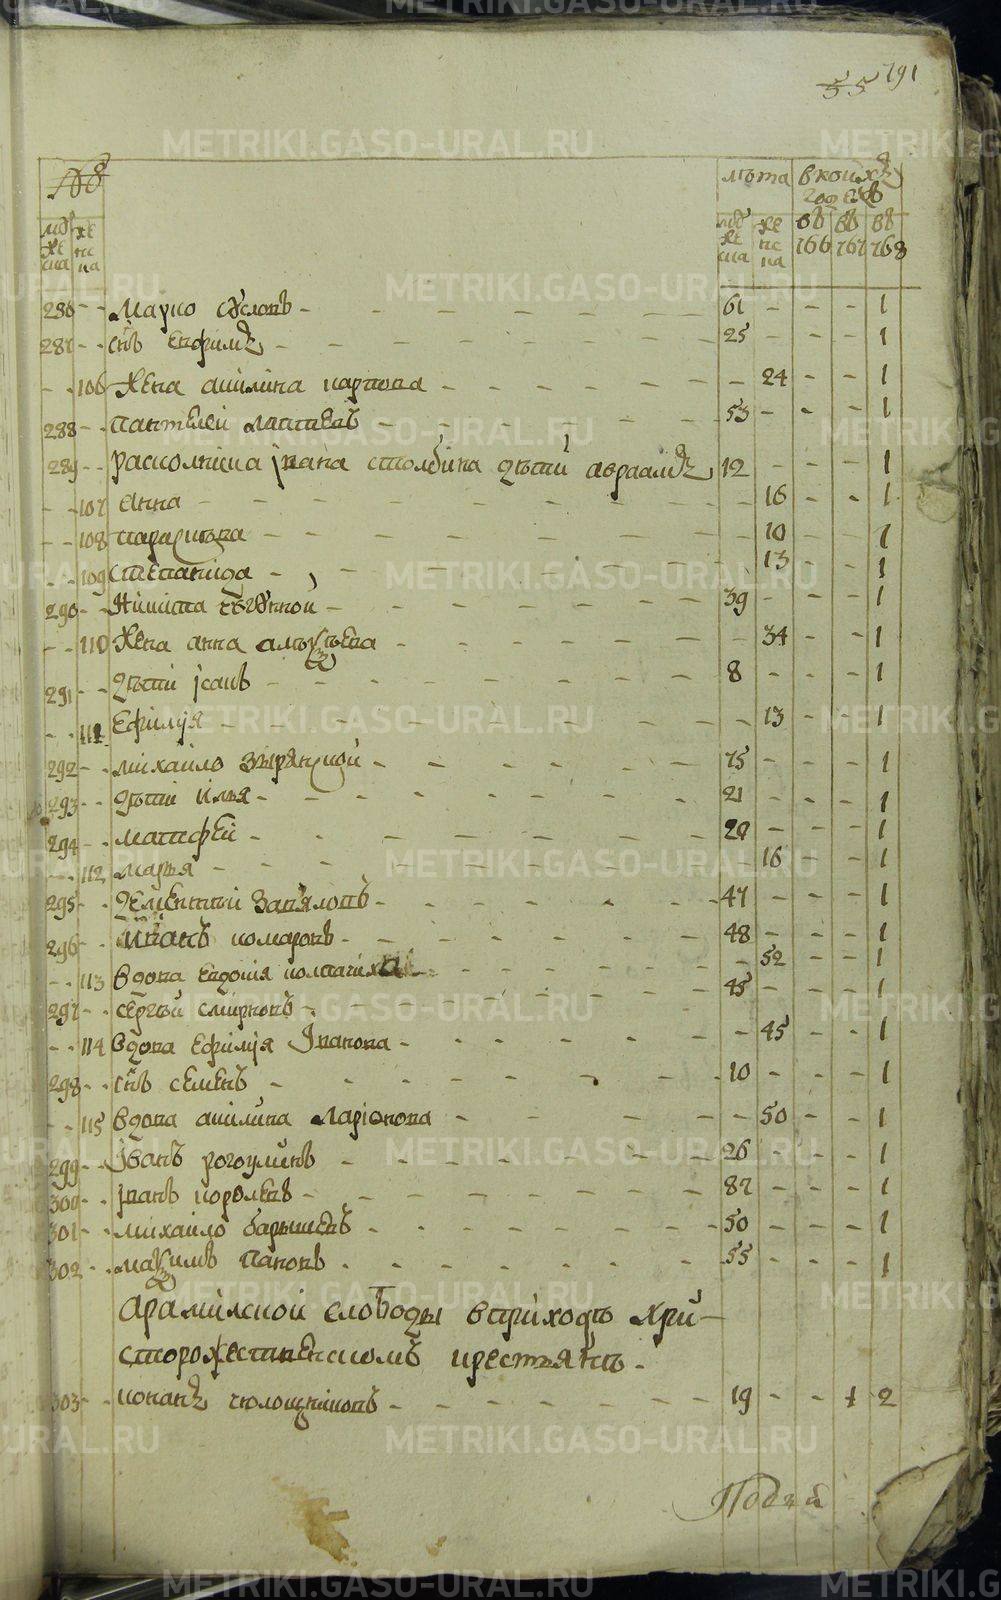 55 791
№
лѣта в коихъ годехъ
муже ска
же нс ка
муже ска
же нс ка
въ 766
въ 767
въ 768
286 - - Марко Сусловъ - 61 - - - 1
287 - - снъ Ефимъ - 25 - - - 1
- - 106 Жена Акилина Карпова - - 24 - - 1
288 - - Пантелей Лаптевъ - 53 - - - 1
289 - - раскольника Ивана Столбина дѣти Авраамъ 12 - - - 1
- - 107 Анна - - 16 - - 1
- - 108 Парасковья - - 10 - - 1
- - 109 Степанида - - 13 - - 1
290 - - Никита - 39 - - - 1
- - 110 Жена Анна Алексѣева - - 34 - - 1
291 - - дѣти Исакъ - 8 - - - 1
- - 111 Ефимія - - 13 - - 1
292 - - Михайло Зырянской - 75 - - - 1
293 - - дѣти Илья - 21 - - - 1
294 - - Матфей - 29 - - - 1
- - 112 Марья - - 16 - - 1
295 - - Дементий Завьяловъ - 47 - - - 1
296 - - Иванъ Комаровъ - 48 - - - 1
- - 113 вдова Евдокія - - 52 - - 1
297 - - Сергѣй Смирновъ - 45 - - - 1
- - 114 вдова Ефимія Іванова - - 45 - - 1
298 - - снъ Семенъ - 10 - - - 1
- - 115 вдова Акилина Ларіонова - - 50 - - 1
299 - - Іванъ Рогоулинъ - 26 - - - 1
300 - - Іванъ Королевъ - 87 - - - 1
301 - - Михайло Барышевъ - 50 - - - 1
302 - - Максимъ Пановъ - 55 - - - 1
Арамилской слободы в приходѣ Хри-
сторожественскомъ крестьянъ -
303 - - Конанъ - 19 - - 1 2
METRIKI.GASO-URAL.RU